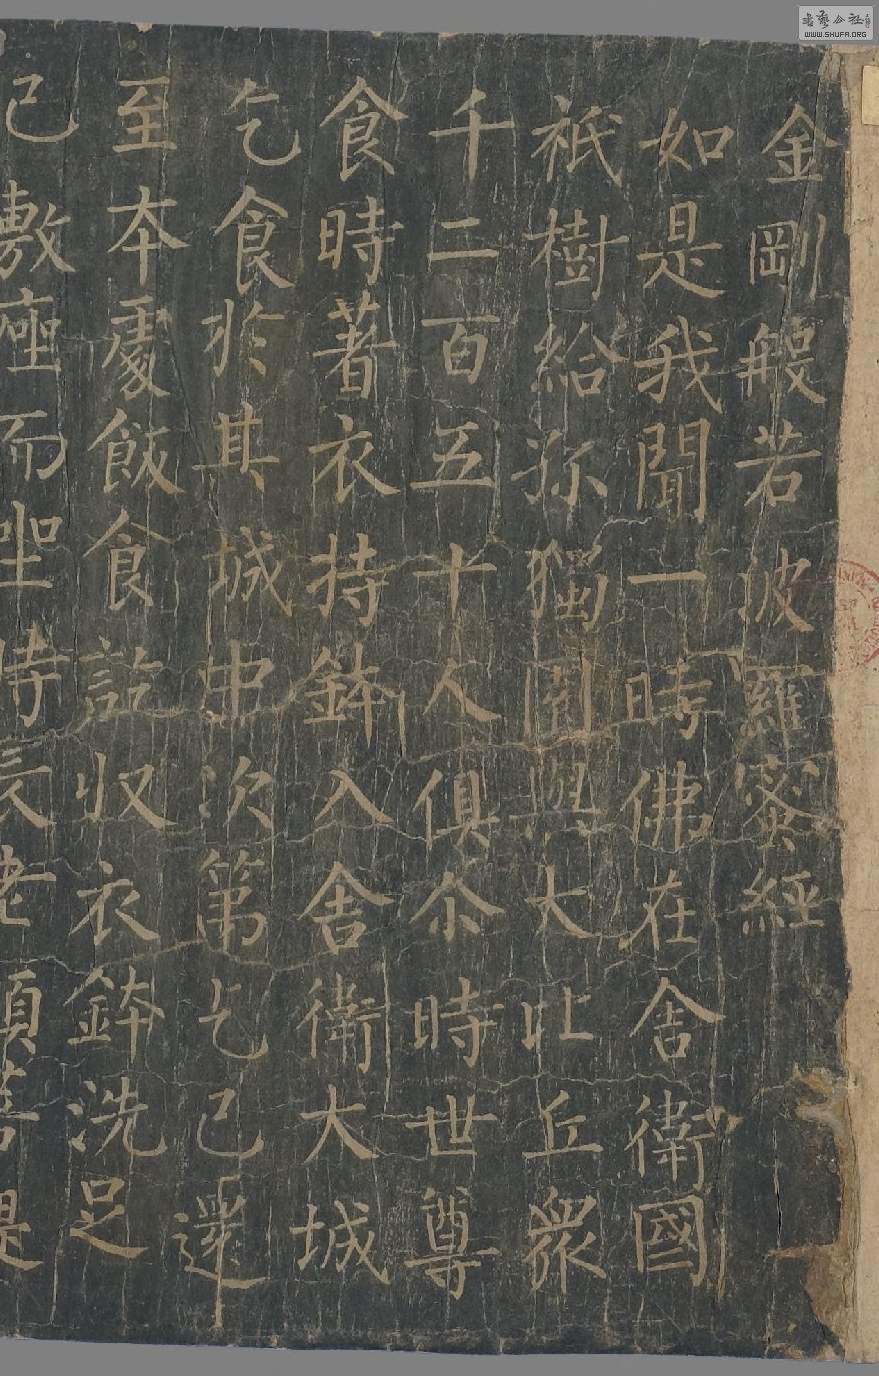 金剛般若波羅蜜經
如是我聞一時佛在舍衛國
祇樹給孤獨園與大比丘眾
千二百五十人俱尒時世尊
食時著衣持鉢入舍衛大城
乞食於其城中次第乞已還
至本處飯食訖収衣鉢洗足
已敷座而坐時長老須菩提
書藝公社
WWW.SHUFA.ORG